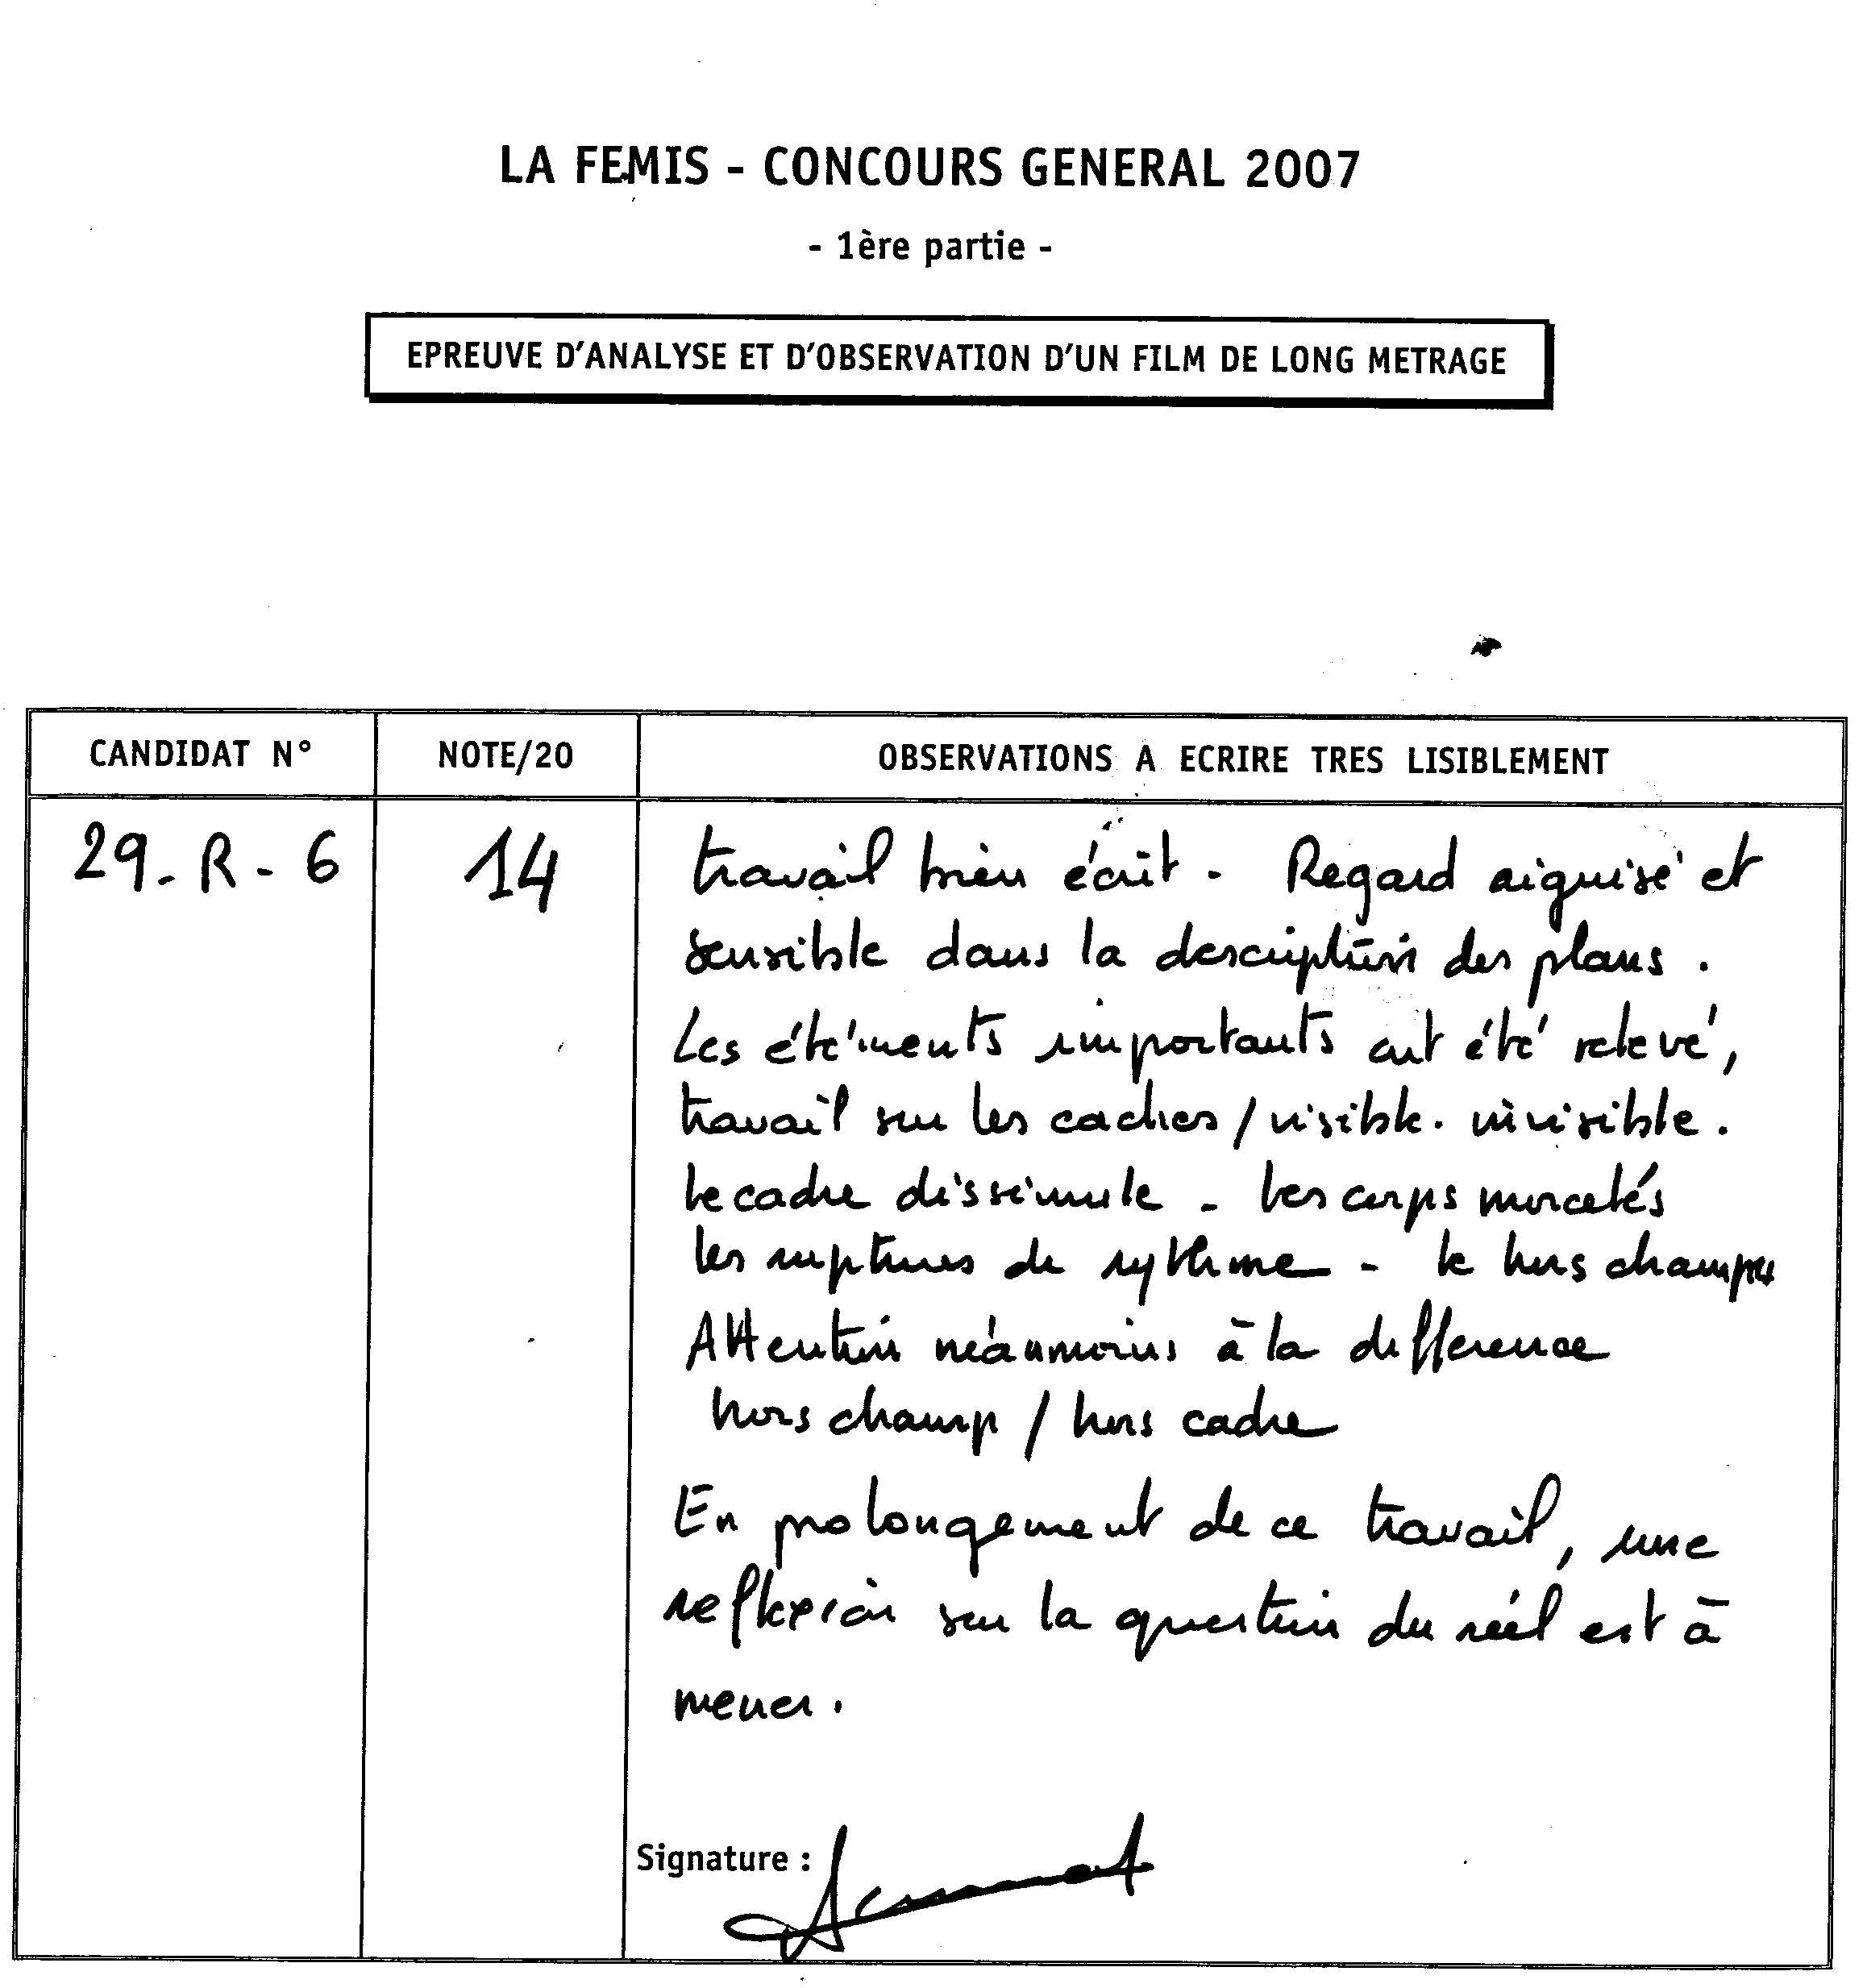 LA FEMIS - CONCOURS GENERAL 2007
- 1ère partie -
EPREUVE D'ANALYSE ET D'OBSERVATION D'UN FILM DE LONG METRAGE
CANDIDAT N° NOTE/20 OBSERVATIONS A ECRIRE TRES LISIBLEMENT
29-R-6 14 travail bien écrit. Regard aiguisé et
sensible dans la description des plans.
Les éléments importants ont été relevé,
travail sur les caches / visible. invisible.
Le cadre dissimule - les corps morcelés
les ruptures de rythme - le hors champ
Attention néanmoins à la différence
hors champ / hors cadre
En prolongement de ce travail, une
reflexion sur la question du réel est à
mener.
Signature :